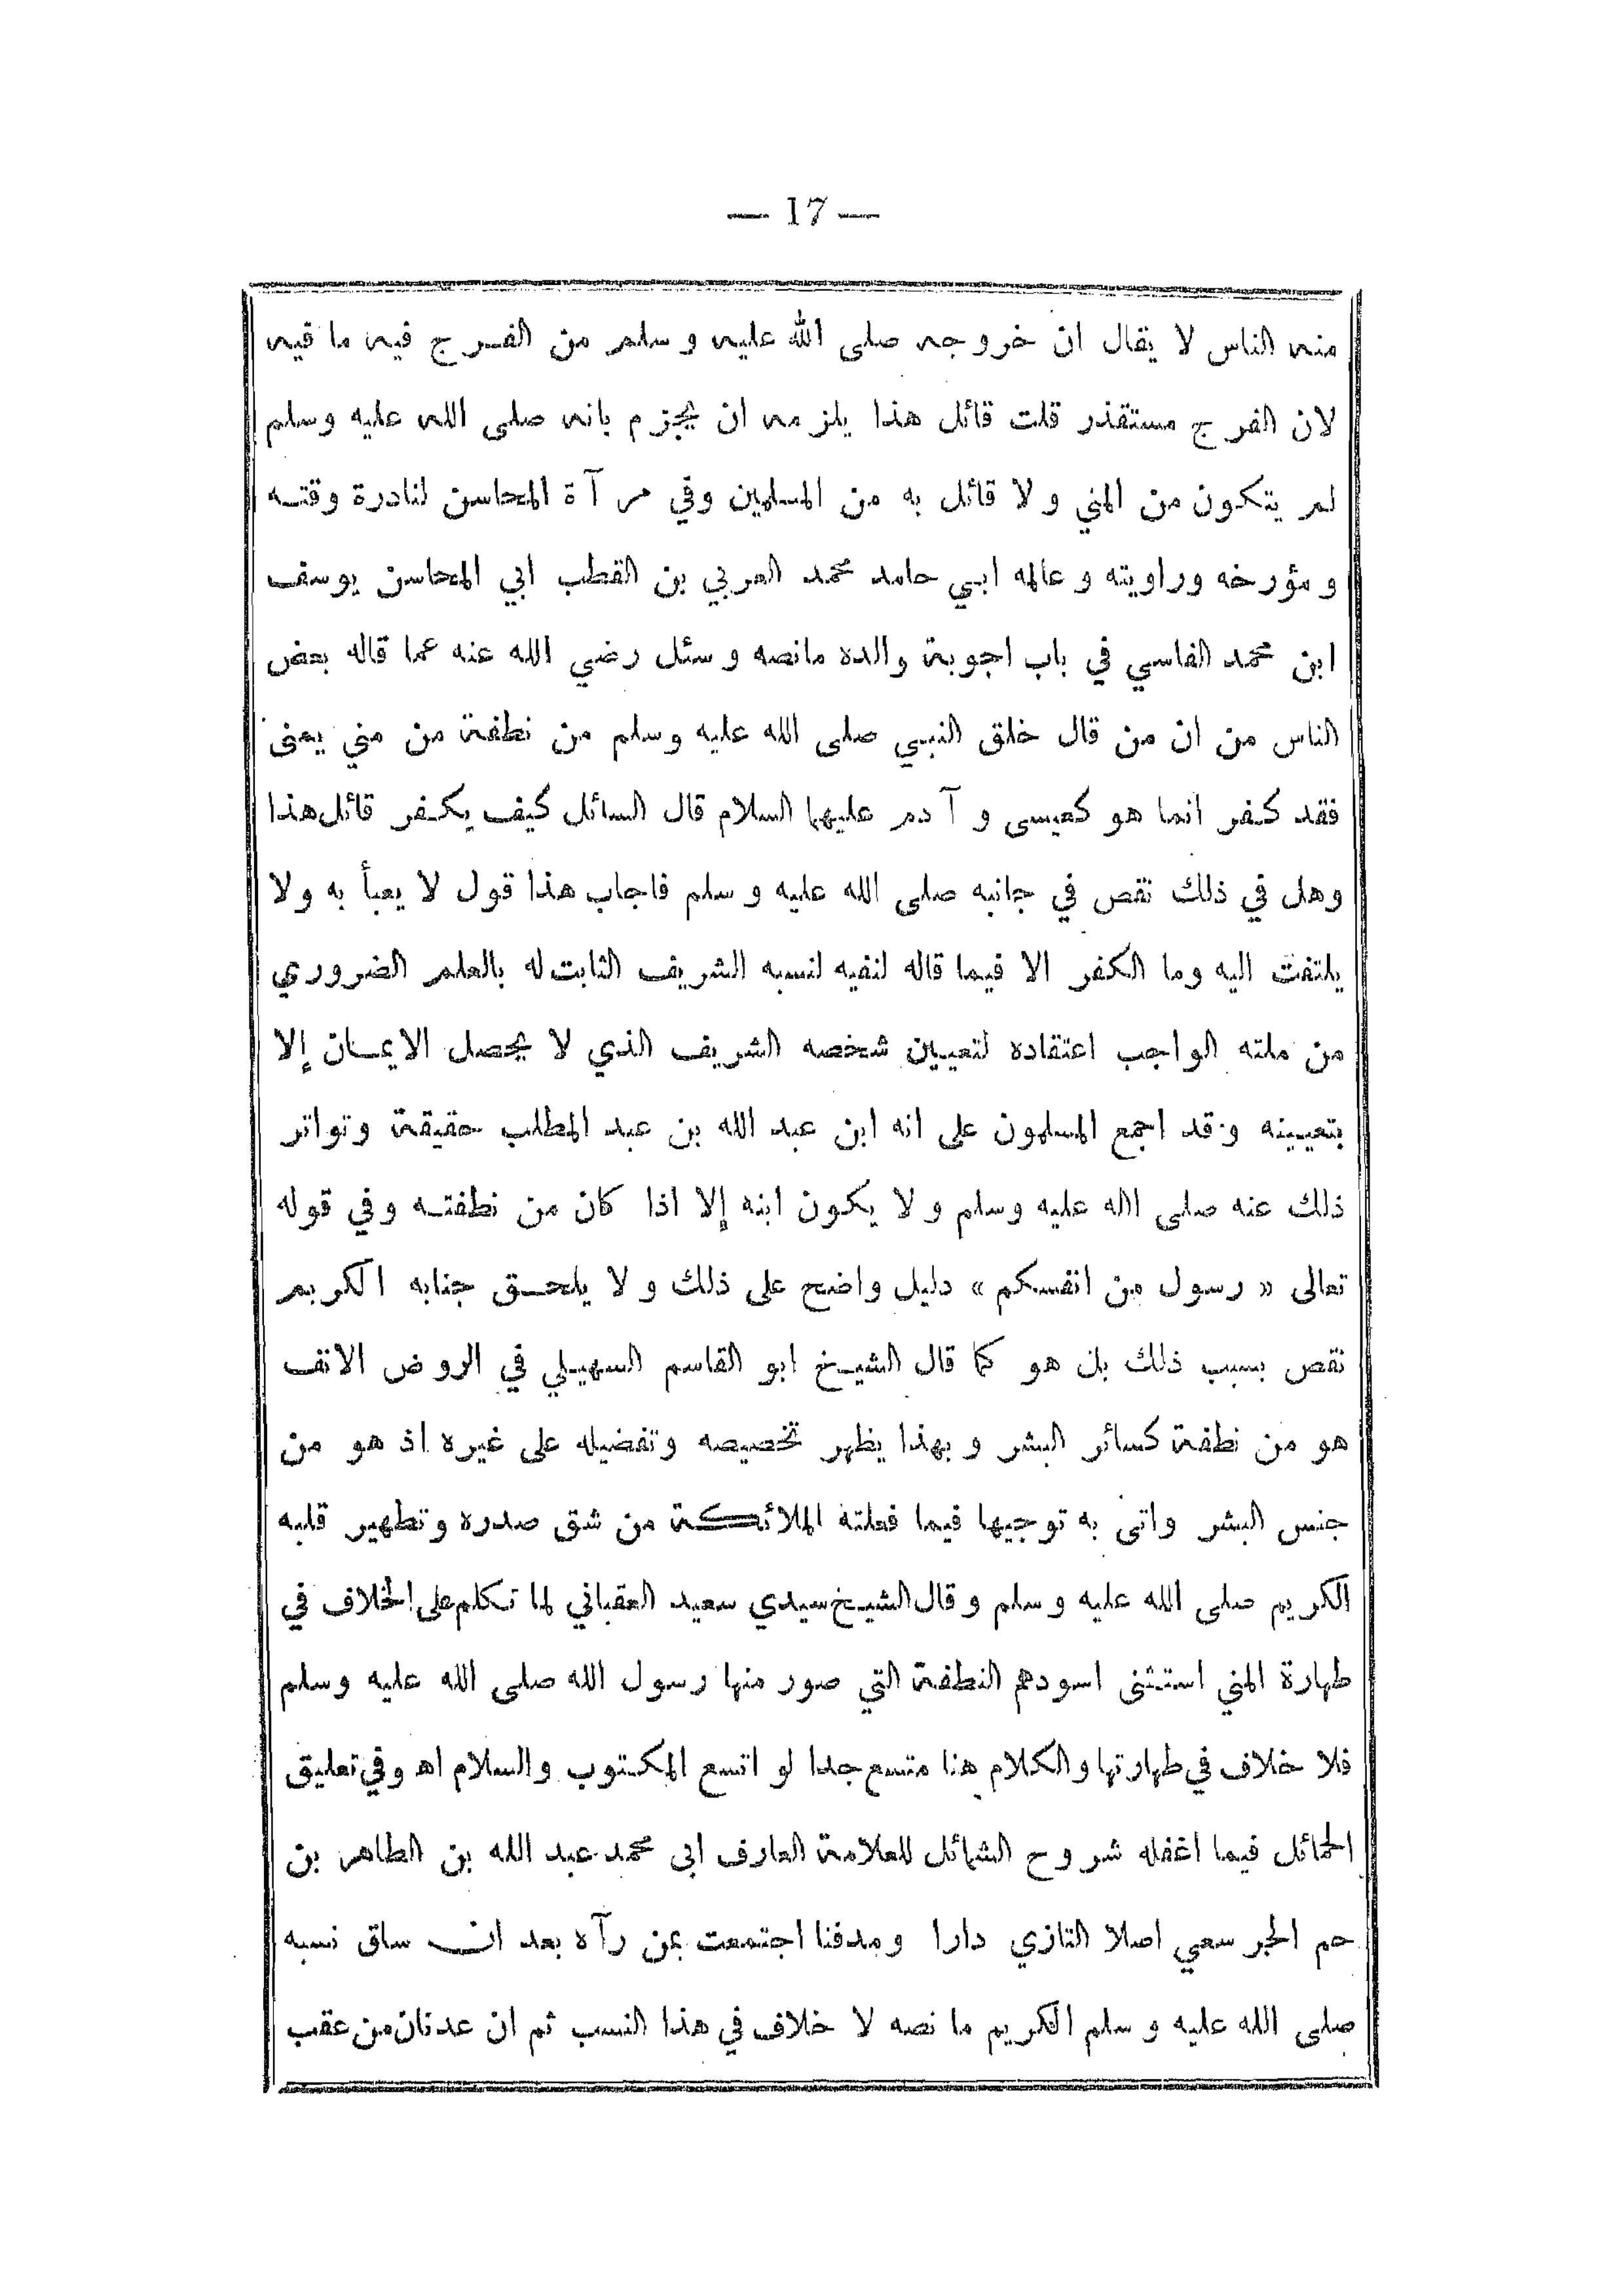 — 17 —
منه الناس لا يقال ان خروجه صلى الله عليه وسلم من الفرج فيه ما فيه
لان الفرج مستقذر قلت قائل هذا يلزمه ان يجزم بانه صلى الله عليه وسلم
لم يتكون من المني ولا قائل به من المسلمين وفي مرآة المحاسن لنادرة وقته
ومؤرخه وراويته وعالمه ابي حامد محمد العربي بن القطب ابي المحاسن يوسف
ابن محمد الفاسي في باب اجوبة والده مانصه وسئل رضي الله عنه عما قاله بعض
الناس من ان من قال خلق النبي صلى الله عليه وسلم من نطفة من مني يمنى
فقد كفر انما هو كعيسى وآدم عليهما السلام قال السائل كيف يكفر قائل هذا
وهل في ذلك نقص في جانبه صلى الله عليه وسلم فاجاب هذا قول لا يعبأ به ولا
يلتفت اليه وما الكفر الا فيما قاله لنفيه لنسبه الشريف الثابت له بالعلم الضروري
من ملته الواجب اعتقاده لتعيين شخصه الشريف الذي لا يحصل الايمان إلا
بتعيينه وقد اجمع المسلمون على انه ابن عبد الله بن عبد المطلب حقيقة وتواتر
ذلك عنه صلى الله عليه وسلم ولا يكون ابنه إلا اذا كان من نطفته وفي قوله
تعالى « رسول من انفسكم » دليل واضح على ذلك ولا يلحق جنابه الكريم
نقص بسبب ذلك بل هو كما قال الشيخ ابو القاسم السهيلي في الروض الانف
هو من نطفة كسائر البشر وبهذا يظهر تخصيصه وتفضيله على غيره اذ هو من
جنس البشر واتى به توجيها فيما فعلته الملائكة من شق صدره وتطهير قلبه
الكريم صلى الله عليه وسلم وقال الشيخ سيدي سعيد العقباني لما تكلم على الخلاف في
طهارة المني استثنى اسودهم النطفة التي صور منها رسول الله صلى الله عليه وسلم
فلا خلاف في طهارتها والكلام هنا متسع جدا لو اتسع المكتوب والسلام اه وفي تعليق
الحمائل فيما اغفله شروح الشمائل للعلامة العارف ابى محمد عبد الله بن الطاهر بن
حم الحجر سعي اصلا التازي دارا ومدفنا اجتمعت بمن رآه بعد ان ساق نسبه
صلى الله عليه وسلم الكريم ما نصه لا خلاف في هذا النسب ثم ان عدنان من عقب